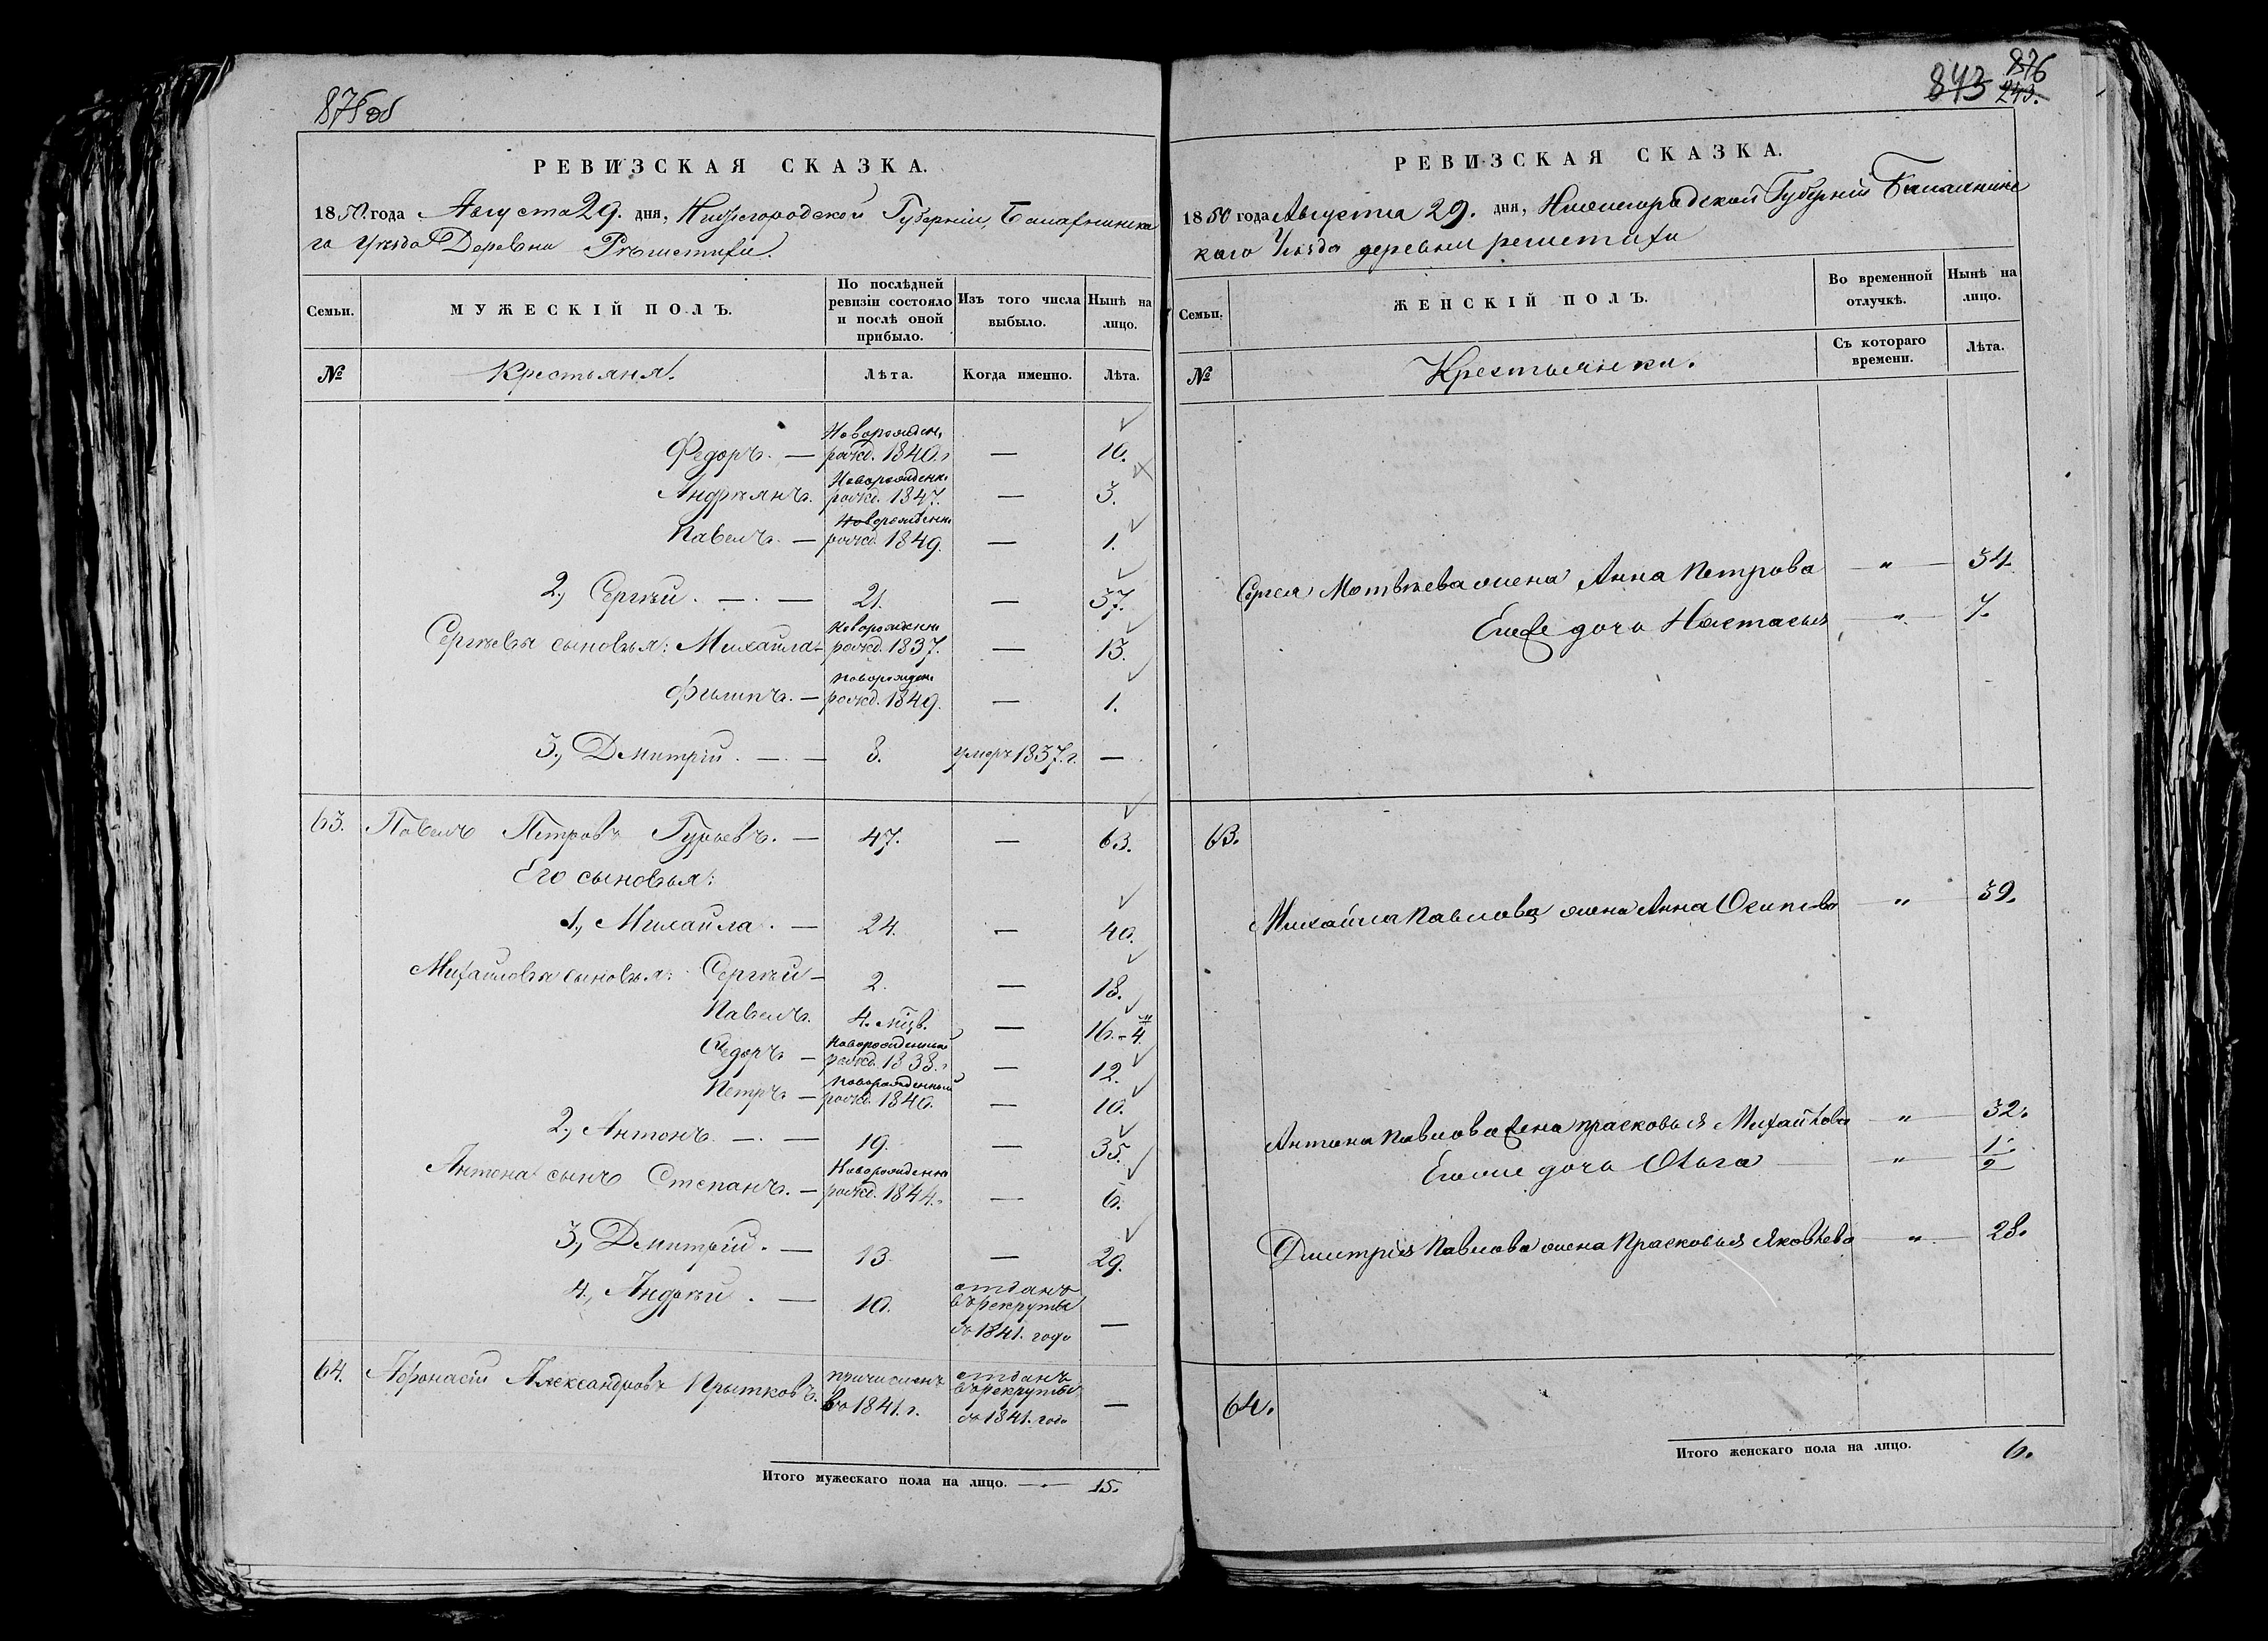 875об
РЕВИЗСКАЯ СКАЗКА.
1850. года Августа 29. дня, Нижегородской Губернiи, Балахнинска
го уѣзда Деревни Рѣшетихи.
Семьи.
МУЖЕСКIЙ ПОЛЪ.
По послѣдней ревизiи состояло и послѣ оной прибыло.
Изъ того числа выбыло.
Нынѣ на лицо.
№
Крестьяня.
Лѣта.
Когда именно.
Лѣта.
Федоръ. — Новорожден. рожд. 1840. — 10.
Андреянъ. Новорожденн. рожд. 1847. — 3.
Павелъ. — Новорожденн рожд. 1849. — 1.
2., Сергѣй. — 21. — 37.
Сергѣевы сыновья: Михайла — Новорожденн рожд. 1837. — 13.
Филипъ. — Новорожден рожд. 1849. — 1.
3., Дмитрiй. — 8. умеръ 1837. г. —
63. Павелъ Петровъ Гурьевъ. — 47. — 63.
Его сыновья:
1., Михайла. — 24. — 40.
Михайловы сыновья: Сергѣй — 2. — 18.
Павелъ. 4. мѣцв. — 16. - 4
Федоръ — Новорожденный рожд. 1838. — 12.
Петръ. — Новорожденный рожд. 1840. — 10.
2., Антонъ. — 19. — 35.
Антона сынъ Степанъ. — Новорожденн рожд. 1844. — 6.
3., Дмитрiй. — 13. — 29.
4., Андрей. — 10. отданъ въ рекруты въ 1841. году —
64. Афонасiй Александровъ Прытковъ. причисленъ въ 1841. г. отданъ въ рекруты въ 1841. году —
Итого мужескаго пола на лицо. — 15.
843 876
243.
РЕВИЗСКАЯ СКАЗКА.
1850 года Августа 29. дня, Нижегородской Губернiи Балахнинс
каго Уѣзда деревни решетихи
Семьи.
ЖЕНСКIЙ ПОЛЪ.
Во временной отлучкѣ.
Нынѣ на лицо.
№
Крестьянки.
Съ котораго времени.
Лѣта.
Сергея Мотвѣева жена Анна Петрова — " — 34.
Егоже дочь Настасья — " — 7.
63.
Михайла Павлова жена Анна Осипова — " — 39.
Антона Павлова жена прасковья Михайлова " — 32.
Егоже дочь Ольга — " — 1/2
Дмитрiя Павлова жена Прасковья Яковлева — " — 28.
64.
Итого женскаго пола на лицо. 6.